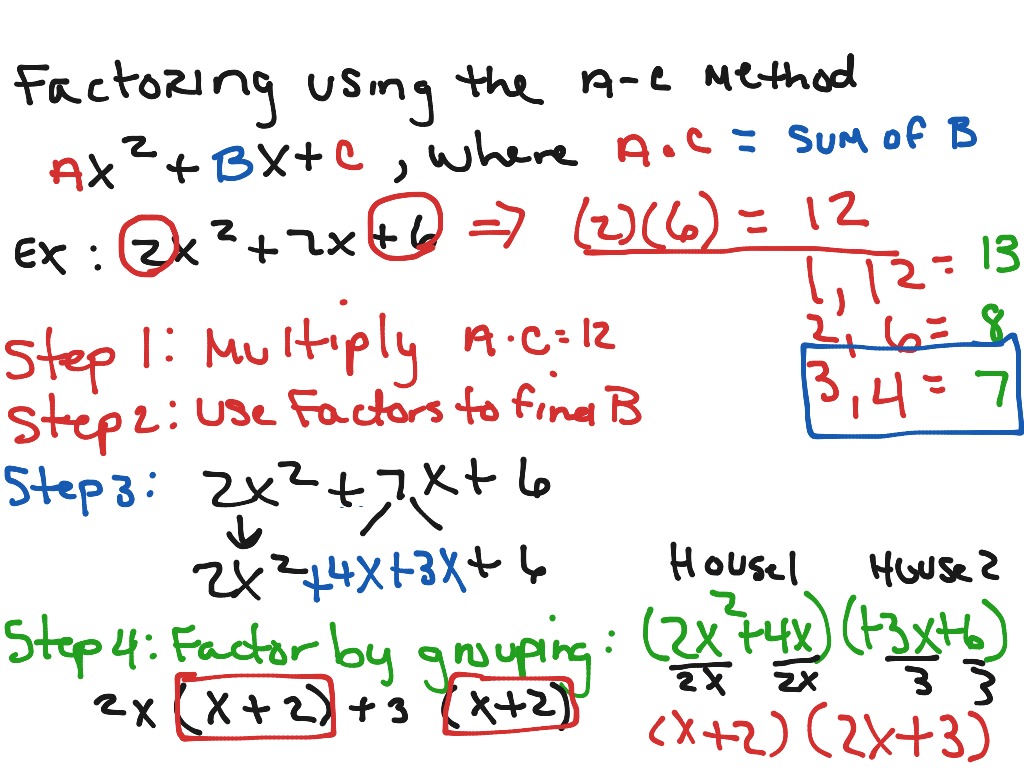 Factoring using the A-C Method
Ax² + Bx + C , where A·C = sum of B
Ex : 2x² + 7x + 6 ⇒ (2)(6) = 12
1, 12 = 13
2, 6 = 8
3, 4 = 7
Step 1: Multiply A·C = 12
Step 2: Use Factors to find B
Step 3: 2x² + 7x + 6
2x² + 4x + 3x + 6
House 1 House 2
Step 4: Factor by grouping: (2x² + 4x) (+3x + 6)
2x 2x 3 3
2x (x + 2) + 3 (x + 2)
(x + 2) (2x + 3)